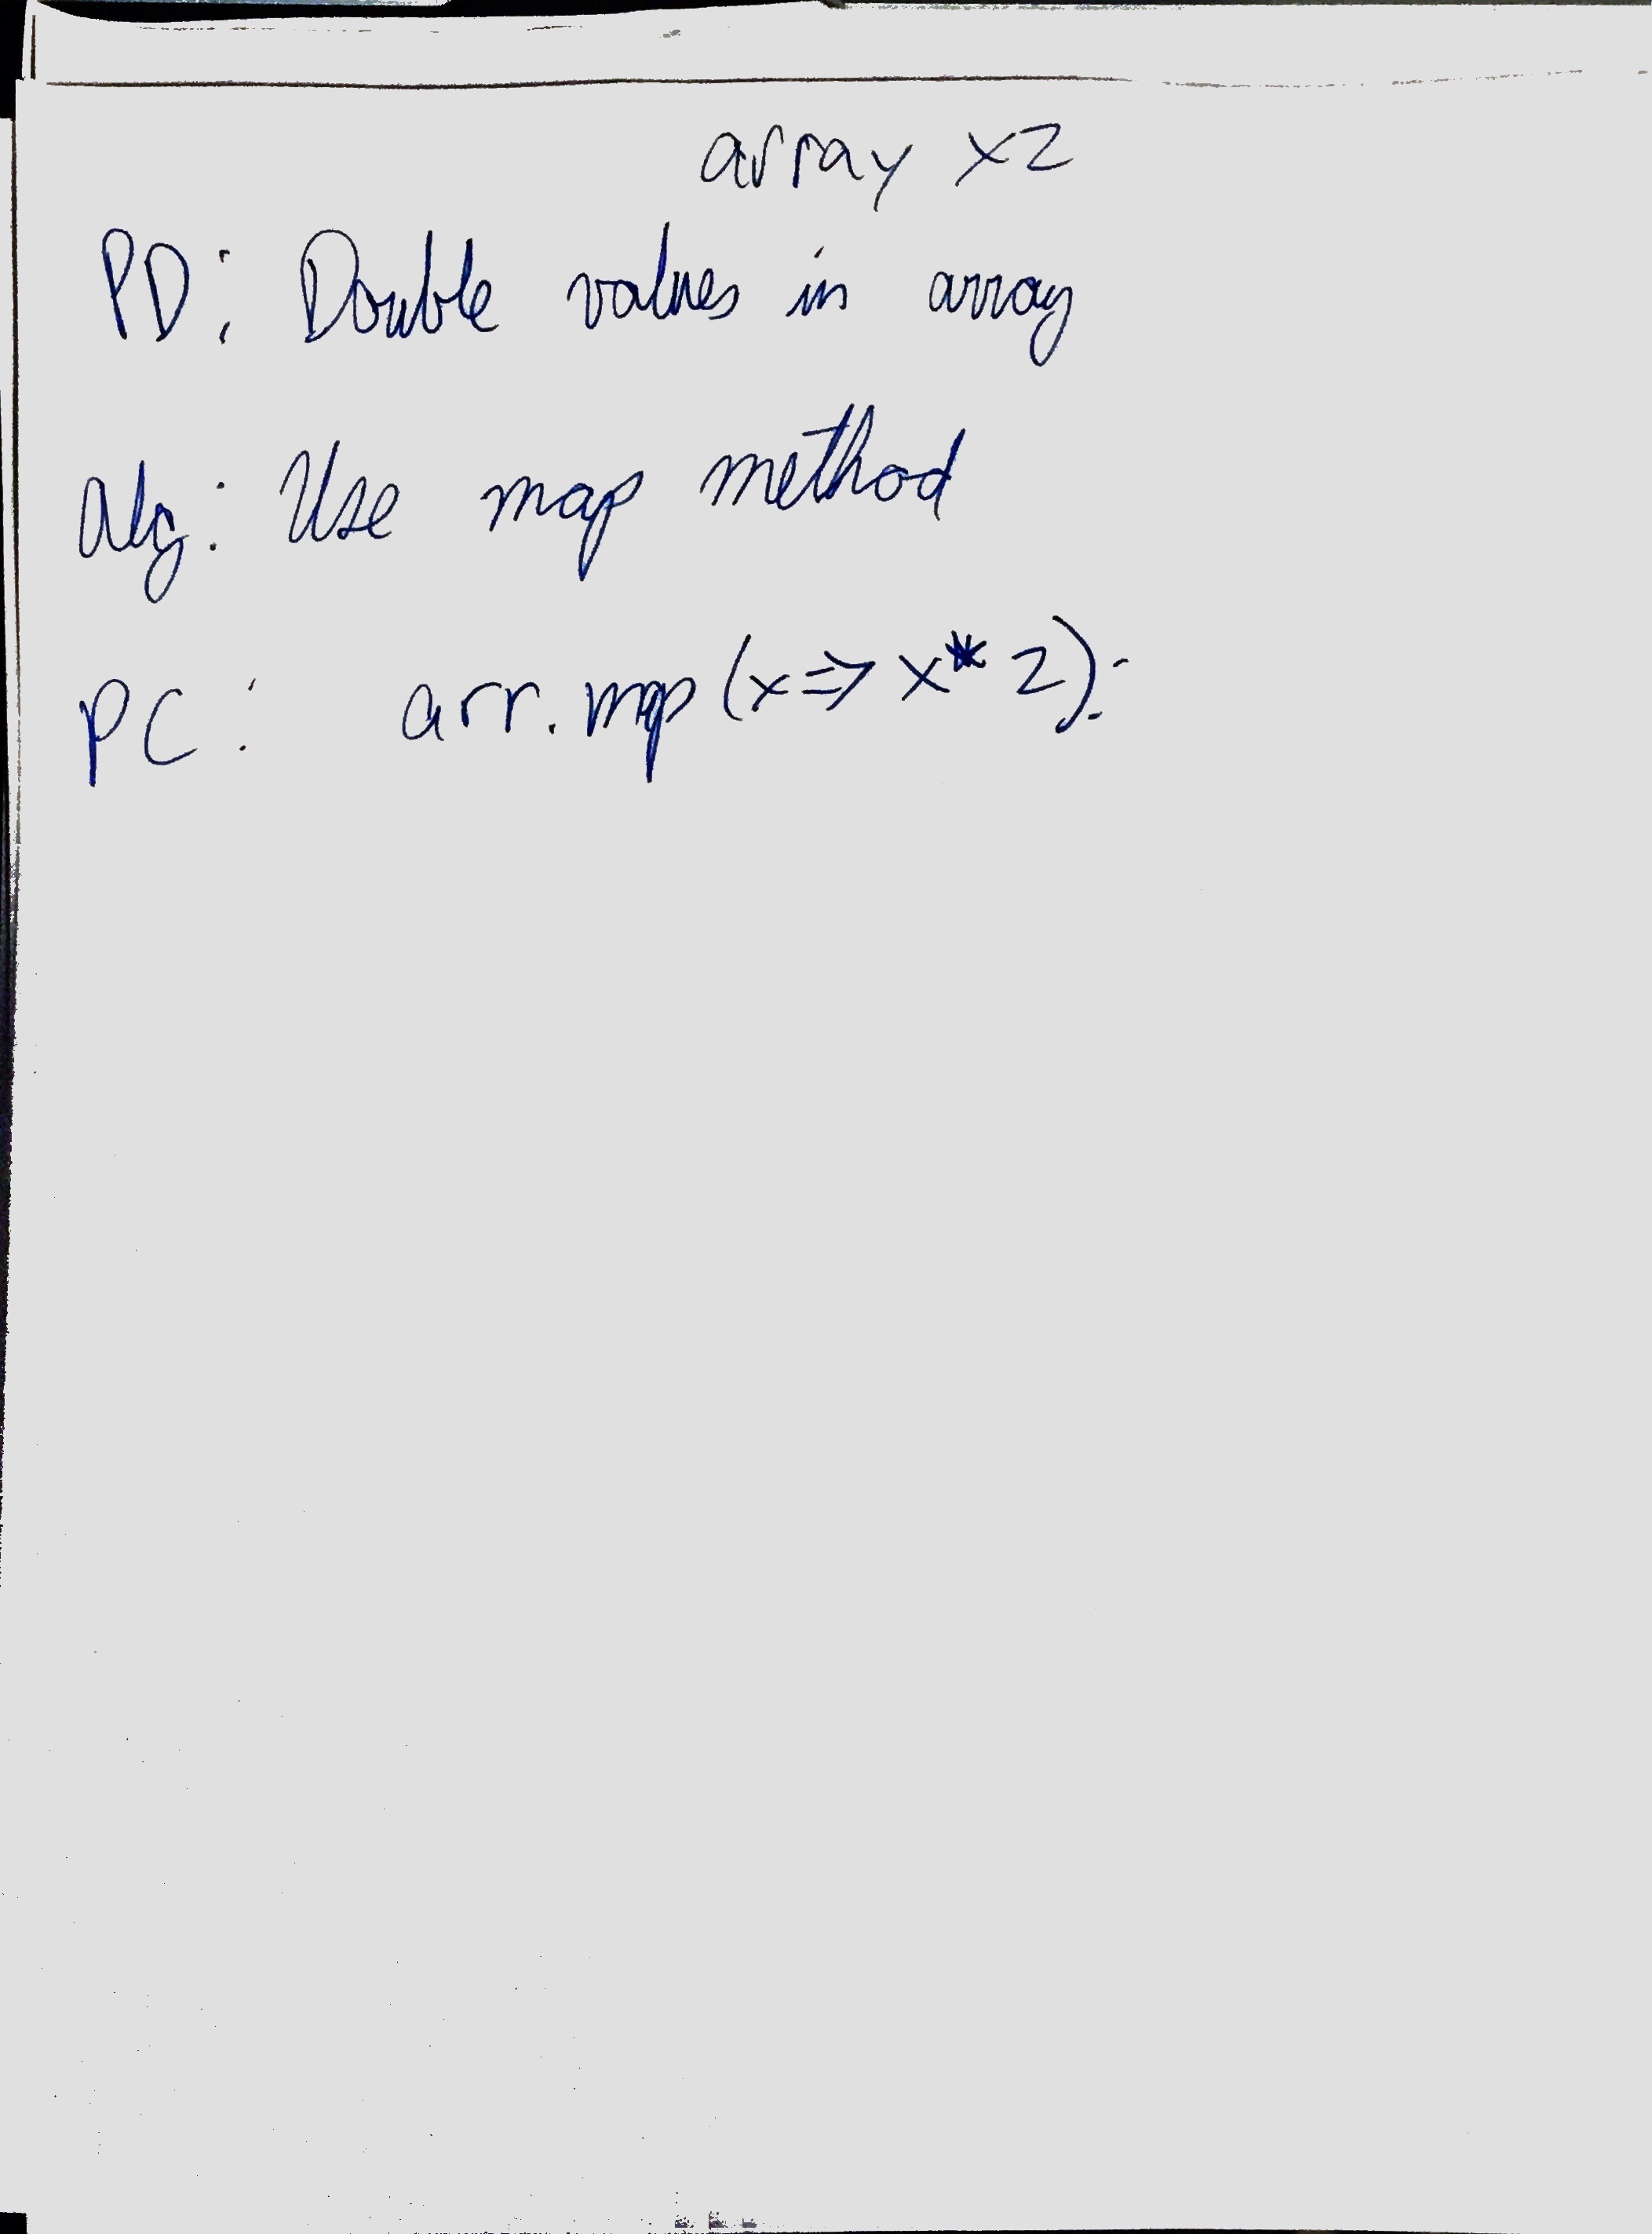 array x2
PD: Double values in array
Alg: Use map method
PC: arr.map(x=>x*2);